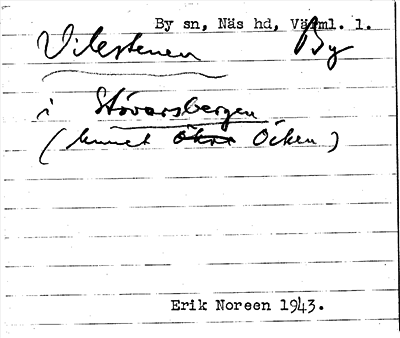 By sn, Näs hd, Värml. l.
Vilestenen By
i Stövarsbergen
( kunnet Öcken )
Erik Noreen 1943.